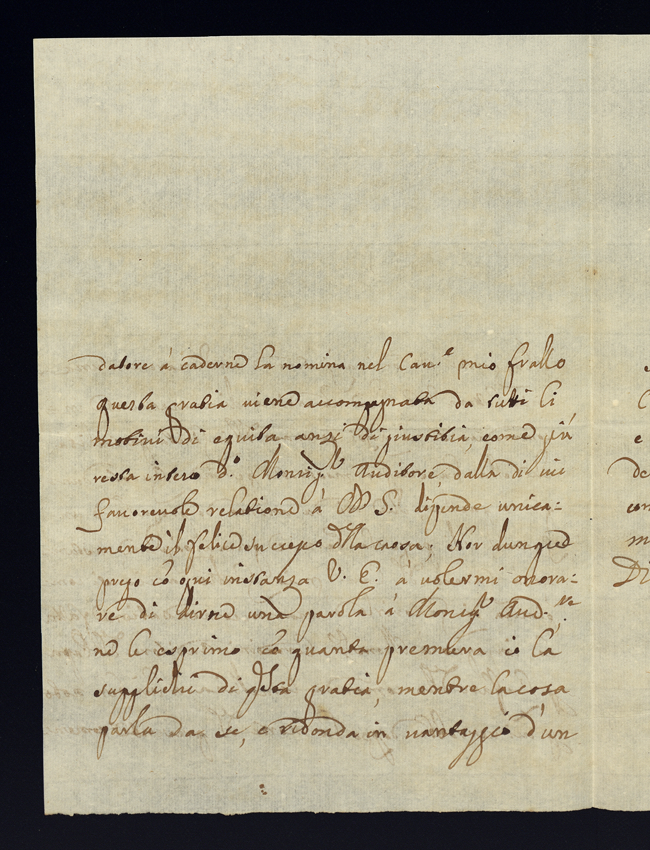 datore á caderne la nomina nel Cav.e mio frallo
questa gratia viene accompagnata da tutti li
motivi di equita, anzi di giustitia, come già
resta inteso d.o Monsig.r Auditore, dalla di cui
favorevole relatione à S. dipende unica=
mente il felice successo della causa; Hor dunque
prego cō ogni instanza V. E. á volermi onora=
re di dirne una parola á Monsig.r Aud.re
ne le esprimo cō quanta premura io la
supplichi di qsta gratia, mentre la cosa
parla da se, e ridonda in vantaggio d'un
e
de
con
m
Di